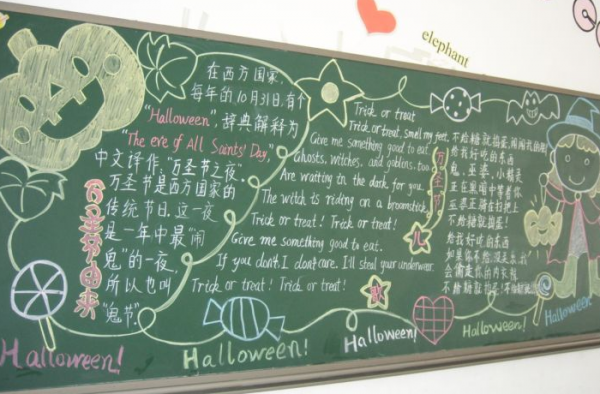 elephant
在西方国家,
每年的10月31日,有个
"Halloween",辞典解释为
"The eve of All Saints' Day,"
中文译作:"万圣节之夜.
万圣节是西方国家的
传统节日,这一夜
是一年中最"闹
鬼"的一夜,
所以也叫
"鬼节".
万圣节由来
Trick or traut
Trick or treat, smell my feet,
Give me something good to eat.
Ghosts, witches, and goblins, too.
Are waiting in the dark for you.
The witch is riding on a broomstick,
Trick or treat! Trick or treat!
Give me something good to eat.
If you don't. I don't care. I'll steal your underwear.
Trick or treat! Trick or treat!
万圣节
儿
歌
不给糖就捣蛋,闻闻我的脚
给我好吃的东西
鬼、巫婆、小精灵
正在黑暗中等着你
巫婆正骑在扫把上
不给糖就捣蛋!
给我好吃的东西
如果你不给,没关系,我
会偷走你的内衣服
不给糖就捣蛋!
Halloween!
Halloween!
Halloween!
Halloween!
Halloween